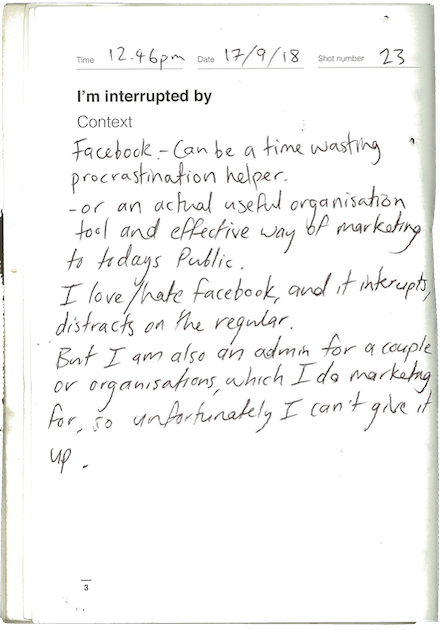 Time 12.46pm Date 17/9/18 Shot number 23
I'm interrupted by
Context
Facebook - Can be a time wasting
procrastination helper.
- or an actual useful organisation
tool and effective way of marketing
to todays Public.
I love/hate facebook, and it interupts,
distracts on the regular.
But I am also an admin for a couple
or organisations, which I do marketng
for, so unfortunately I can't give it
up.
3